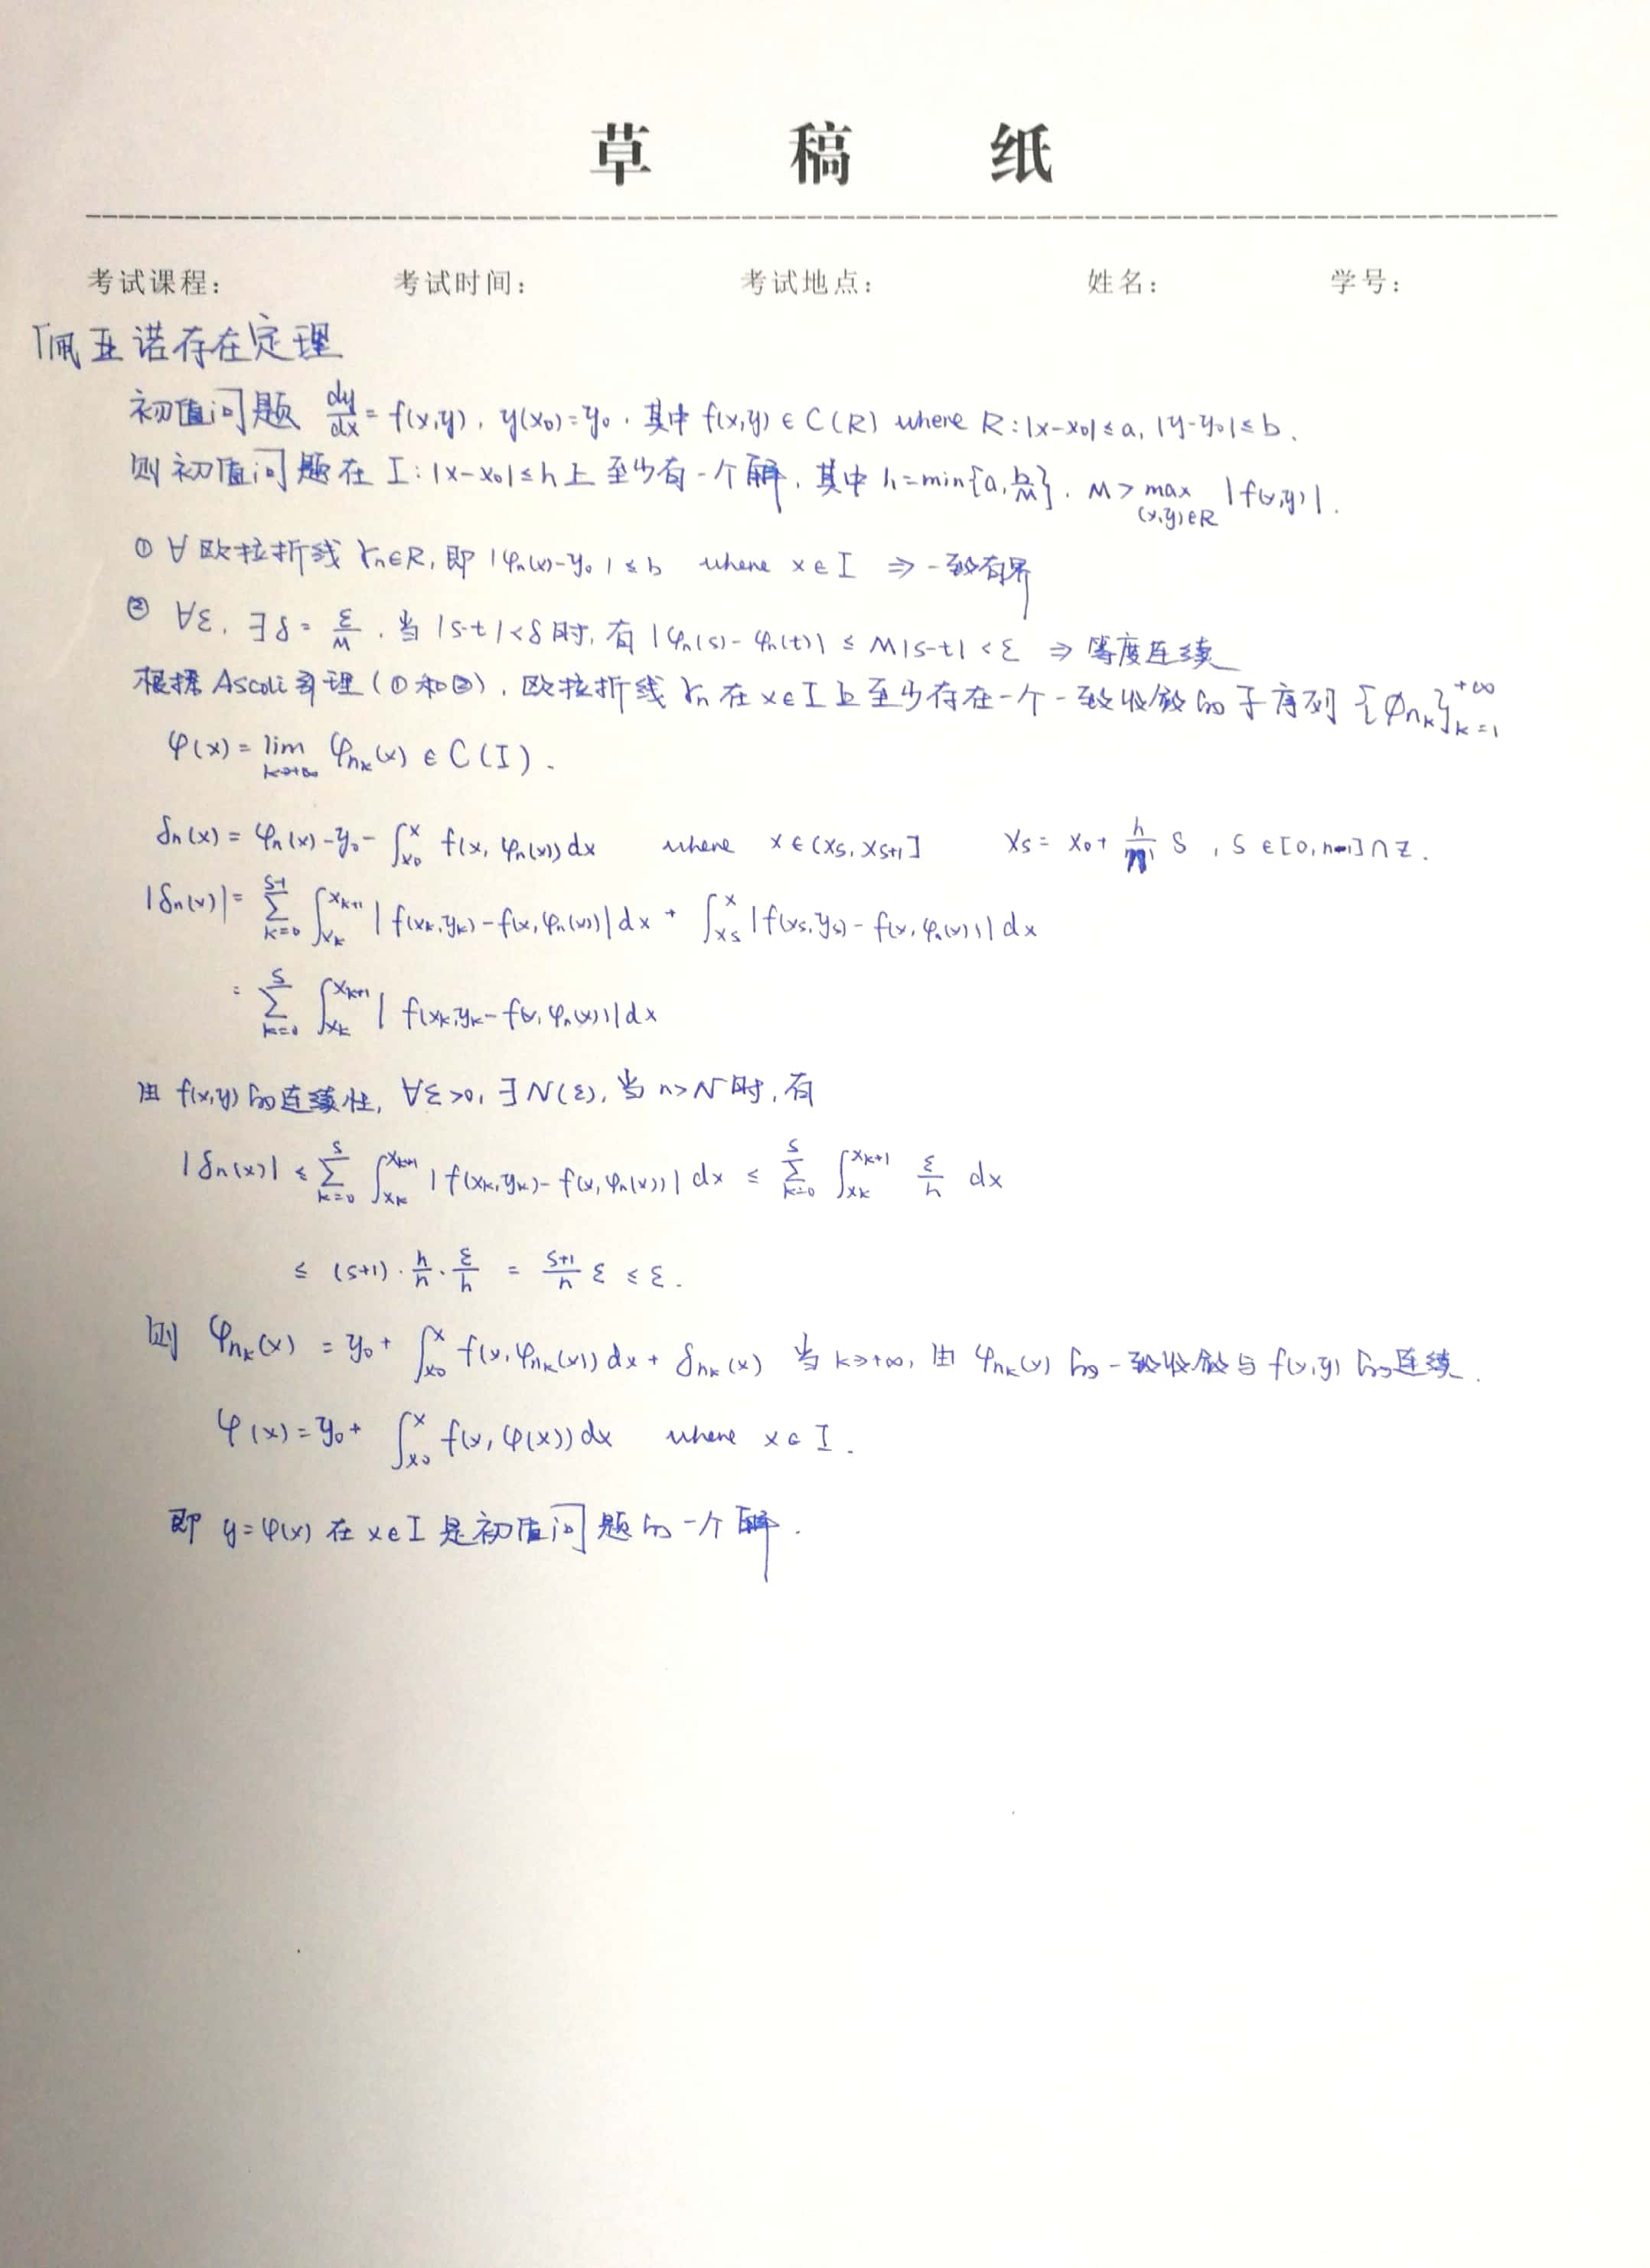 草 稿 纸
考试课程: 考试时间: 考试地点: 姓名: 学号:
「佩亚诺存在定理
初值问题 dy/dx = f(x,y), y(x₀)=y₀. 其中 f(x,y) ∈ C(R) where R: |x-x₀| ≤ a, |y-y₀| ≤ b.
则初值问题在 I: |x-x₀| ≤ h 上至少有一个解, 其中 h = min{a, b/M}. M > max_{(x,y)∈R} |f(x,y)|.
① ∀ 欧拉折线 γn ∈ R, 即 |φn(x)-y₀| ≤ b where x ∈ I ⇒ 一致有界
② ∀ε, ∃δ = ε/M, 当 |s-t| < δ 时, 有 |φn(s) - φn(t)| ≤ M|s-t| < ε ⇒ 等度连续
根据 Ascoli 引理 (①和②), 欧拉折线 γn 在 x∈I 上至少存在一个一致收敛的子序列 {φ_{n_k}}_{k=1}^{+∞}
φ(x) = lim_{k→+∞} φ_{n_k}(x) ∈ C(I).
δn(x) = φn(x) - y₀ - ∫_{x₀}^{x} f(x, φn(x)) dx where x ∈ (x_s, x_{s+1}] x_s = x₀ + h/n s, s ∈ [0, n-1] ∩ Z.
|δn(x)| = ∑_{k=0}^{s-1} ∫_{x_k}^{x_{k+1}} |f(x_k, y_k) - f(x, φn(x))| dx + ∫_{x_s}^{x} |f(x_s, y_s) - f(x, φn(x))| dx
= ∑_{k=0}^{s} ∫_{x_k}^{x_{k+1}} | f(x_k, y_k - f(x, φn(x))| dx
由 f(x,y) 的连续性, ∀ε>0, ∃N(ε), 当 n>N 时, 有
|δn(x)| ≤ ∑_{k=0}^{s} ∫_{x_k}^{x_{k+1}} |f(x_k, y_k) - f(x, φn(x))| dx ≤ ∑_{k=0}^{s} ∫_{x_k}^{x_{k+1}} ε/h dx
≤ (s+1) · h/n · ε/h = (s+1)/n ε ≤ ε.
则 φ_{n_k}(x) = y₀ + ∫_{x₀}^{x} f(x, φ_{n_k}(x)) dx + δ_{n_k}(x) 当 k→+∞, 由 φ_{n_k}(x) 的一致收敛与 f(x,y) 的连续.
φ(x) = y₀ + ∫_{x₀}^{x} f(x, φ(x)) dx where x ∈ I.
即 y=φ(x) 在 x∈I 是初值问题的一个解.